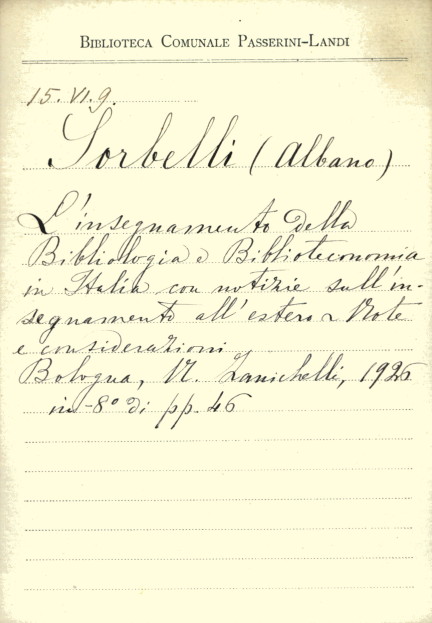 BIBLIOTECA COMUNALE PASSERINI-LANDI
15. VI. 9.
Sorbelli (Albano)
L'insegnamento della
Bibliologia e Biblioteconomia
in Italia con notizie sull'in-
segnamento all'estero - Note
e considerazioni
Bologna, N. Zanichelli, 1926
in-8° di pp. 46